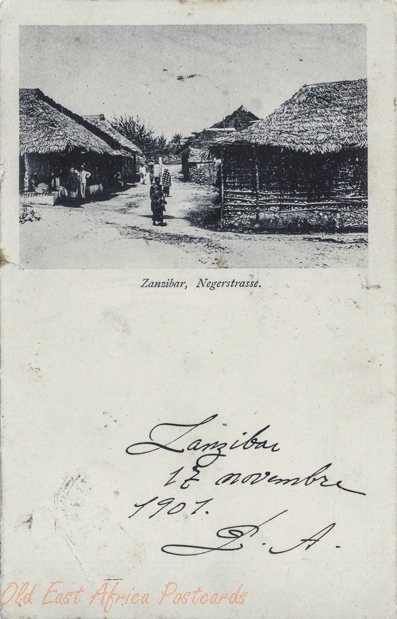 Zanzibar, Negerstrasse.
Zanzibar
17 novembre
1901.
P. A.
Old East Africa Postcards